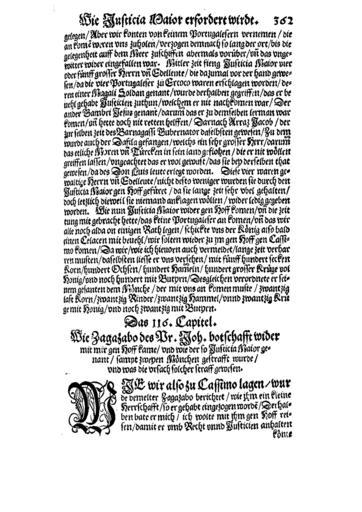 Wie Justicia Maior erfordert wirdt. 362
gelegen/ Aber wir konten von keinem Portugalesern vernemen/ die
an kom̃en weren vns zuholen/ verzogen demnach so lang der ort/ bis die
gelegenheit auff dem Meer zuschiffen abermals vorüber/ vnd das vnge-
witter wider eingefallen war. Mitler zeit fieng Justicia Maior vier
oder fünff grosser Herrn vñ Edelleute/ die dazumal vor der hand gewe-
sen/ da die vier Portugaleser zu Ercoco waren erschlagen worden/ de-
ren einer Magali Soldan genant/ wurde derhalben gegriffen/ das er be-
uehl gehabt Justicien zuthun/ welchem er nit nachkomen war/ Der
ander Bambei Jesus genant/ darumb das er zu demselben lermen war
komen/ vñ hette doch nit retten helffen/ Darnach Arraz Jacob/ der
zur selben zeit des Barnagassi Gubernator daselbsten gewesen/ Zu dem
wurde auch der Dafila gefangen/ welchs ein sehr grosser Herr/ darum̃
das etliche Moren vñ Türcken in sein land geflohen/ die er nit wöllen
greiffen lassen/ vngeachtet das er wol gewust/ das sie bey derselben that
gewesen/ da des Don Luis leute erlegt worden. Diese vier waren ge-
waltige Herrn vñ Edelleute/ nicht desto weniger wurden sie durch den
Justicia Maior gen Hoff gefürt/ da sie lange zeit sehr vbel gehalten/
doch letzlich dieweil sie niemand anklagen wölten/ wider ledig gegeben
worden. Wie nun Justicia Maior wider gen Hoff komen/ vñ die zeit
vns mit gebracht hette/ das keine Portugaleser an komen/ vñ das wir
alle noch alda on einigen Rath legen/ schickte vns der König also bald
einen Celacen mit beuehl/ wie solten wieder zu jm gen Hoff gen Cassi-
mo komen/ Da wir/ wie ich hieuon auch vermeldet/ lange zeit verhar-
ren musten/ daselbsten liesse er vns versehen/ mit fünff hundert secken
Korn/ hundert Ochsen/ hundert Hameln/ hundert grosser Krüge vol
Honig/ vnd noch hundert mit Buttern/ Desgleichen verordnete er sei-
nem gesanten dem Mönche/ der mit vns an komen muste/ zwantzig
last Korn/ zwantzig Rinder/ zwantzig Hammel/ vnnd zwantzig Krü
ge mit Honig/ vnd noch zwantzig mit Buttern.
Das 116. Capitel.
Wie Zagazabo des Pr. Joh. botschafft wider
mit mir gen Hoff kame/ vnd wie der so Justicia Maior ge-
nant/ sampt zweyen Mönchen gestrafft wurde/
vnd was die vrsach solcher straff gewesen.
WIE wir also zu Cassimo lagen/ wur
de vermelter Zagazabo berichtet/ wie jhm ein kleine
Herrschafft/ so er gehabt eingezogen worden/ Derhal-
ben bate er mich/ ich wolte mit jhm gen Hoff rei-
sen/ damit er vmb Recht vnnd Justicien anhalten
könte